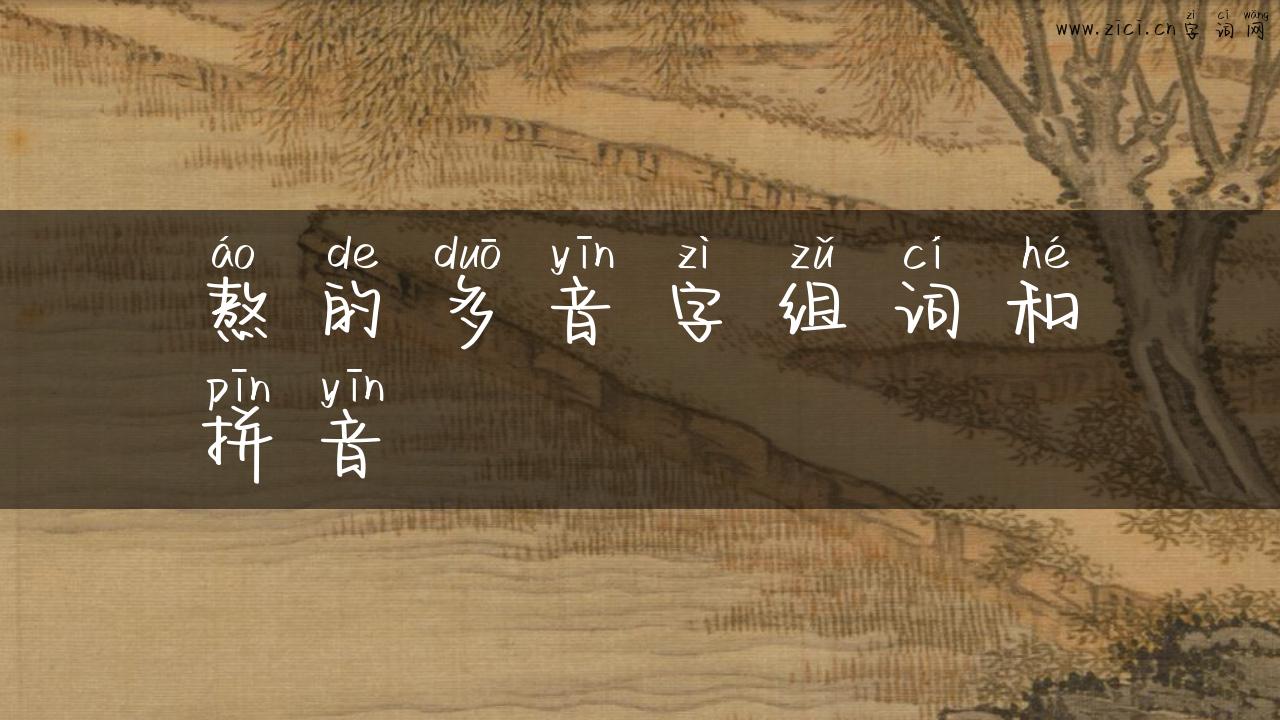 zì cí wǎng
www.zici.cn 字 词 网
áo de duō yīn zì zǔ cí hé
熬 的 多 音 字 组 词 和
pīn yīn
拼 音